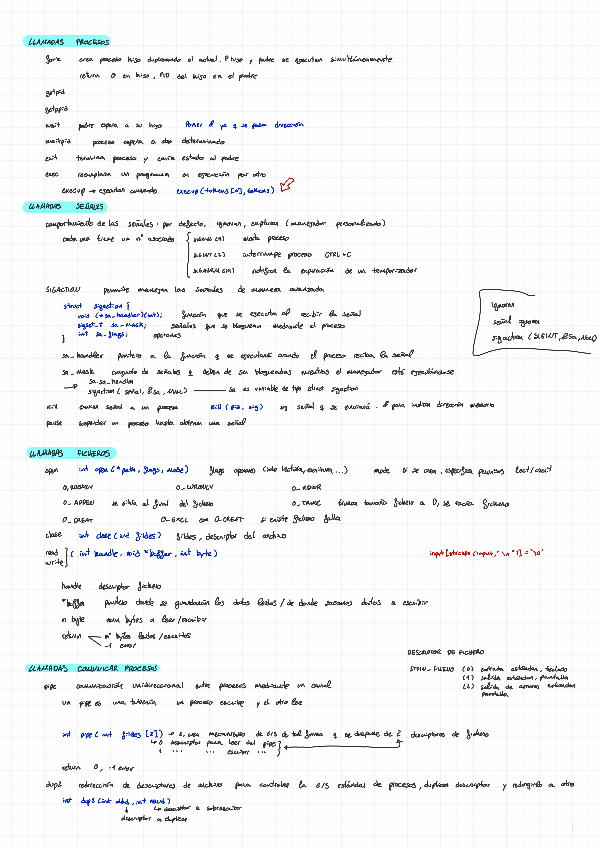 LLAMADAS PROCESOS
fork crea proceso hijo duplicando el actual. P hijo y padre se ejecutan simultáneamente
return 0 en hijo, PID del hijo en el padre
getpid
getppid
wait padre espera a su hijo Poner & ya q se pasa dirección
waitpid proceso espera a otro determinado
exit termina proceso y envía estado al padre
exec reemplaza un programa en ejecución por otro
execvp → ejecutar comando execvp(tokens[0], tokens)
LLAMADAS SEÑALES
comportamiento de las señales: por defecto, ignorar, capturar (manejador personalizado)
cada una tiene un nº asociado
mata proceso
SIGINT(2) interrumpe proceso CTRL+C
SIGALRM notifica la expiración de un temporizador
SIGACTION permite manejar las señales de manera avanzada
struct sigaction {
void (*sa_handler)(int); función que se ejecuta al recibir la señal
sigset_t sa_mask; señales que se bloquean mediante el proceso
int sa_flags; opciones
}
ignorar
señal ignorar
sigaction (SIGINT, &sa, NULL)
sa_handler puntero a la función q se ejecutará cuando el proceso reciba la señal
sa_mask conjunto de señales q deben de ser bloqueadas mientras el manejador esté ejecutándose
sa.sa_handler
sigaction (señal, &sa, NULL) sa es variable de tipo struct sigaction
kill enviar señal a un proceso kill (pid, sig) sig señal q se enviará. & para indicar dirección memoria
pause suspender un proceso hasta obtener una señal
LLAMADAS FICHEROS
open int open (*path, flags, mode) flags opciones (solo lectura, escritura ...) mode si se crea, especifica permisos
O_RDONLY O_WRONLY O_RDWR
O_APPEN se sitúa al final del fichero O_TRUNC trunca tamaño fichero a 0, se vacía fichero
O_CREAT O_EXCL con O_CREAT si existe fichero falla
close int close (int fildes) fildes, descriptor del archivo
read
write (int handle, void *buffer, int byte)
input[strcspn(input, "\n")] = '\0'
handle descriptor fichero
*buffer puntero donde se guardarán los datos leídos / de donde sacamos datos a escribir
n byte num bytes a leer/escribir
return nº bytes leídos/escritos
-1 error
DESCRIPTOR DE FICHERO
LLAMADAS COMUNICAR PROCESOS
STDIN_FILENO (0) entrada estándar, teclado
(1) salida estándar, pantalla
(2) salida de errores estándar
pantalla
pipe comunicación unidireccional entre procesos mediante un canal
un pipe es una tubería un proceso escribe y el otro lee
int pipe (int fildes [2]) → crea mecanismo de E/S de tal forma q se dispone de 2 descriptores de fichero
0 descriptor para leer del pipe
1 " " escribir "
return 0, -1 error
dup2 redirección de descriptores de archivo para controlar la E/S estándar de procesos, duplica descriptor y redirigirlo a otro
int dup2 (int oldd, int newd)
descriptor a sobrescribir
descriptor a duplicar